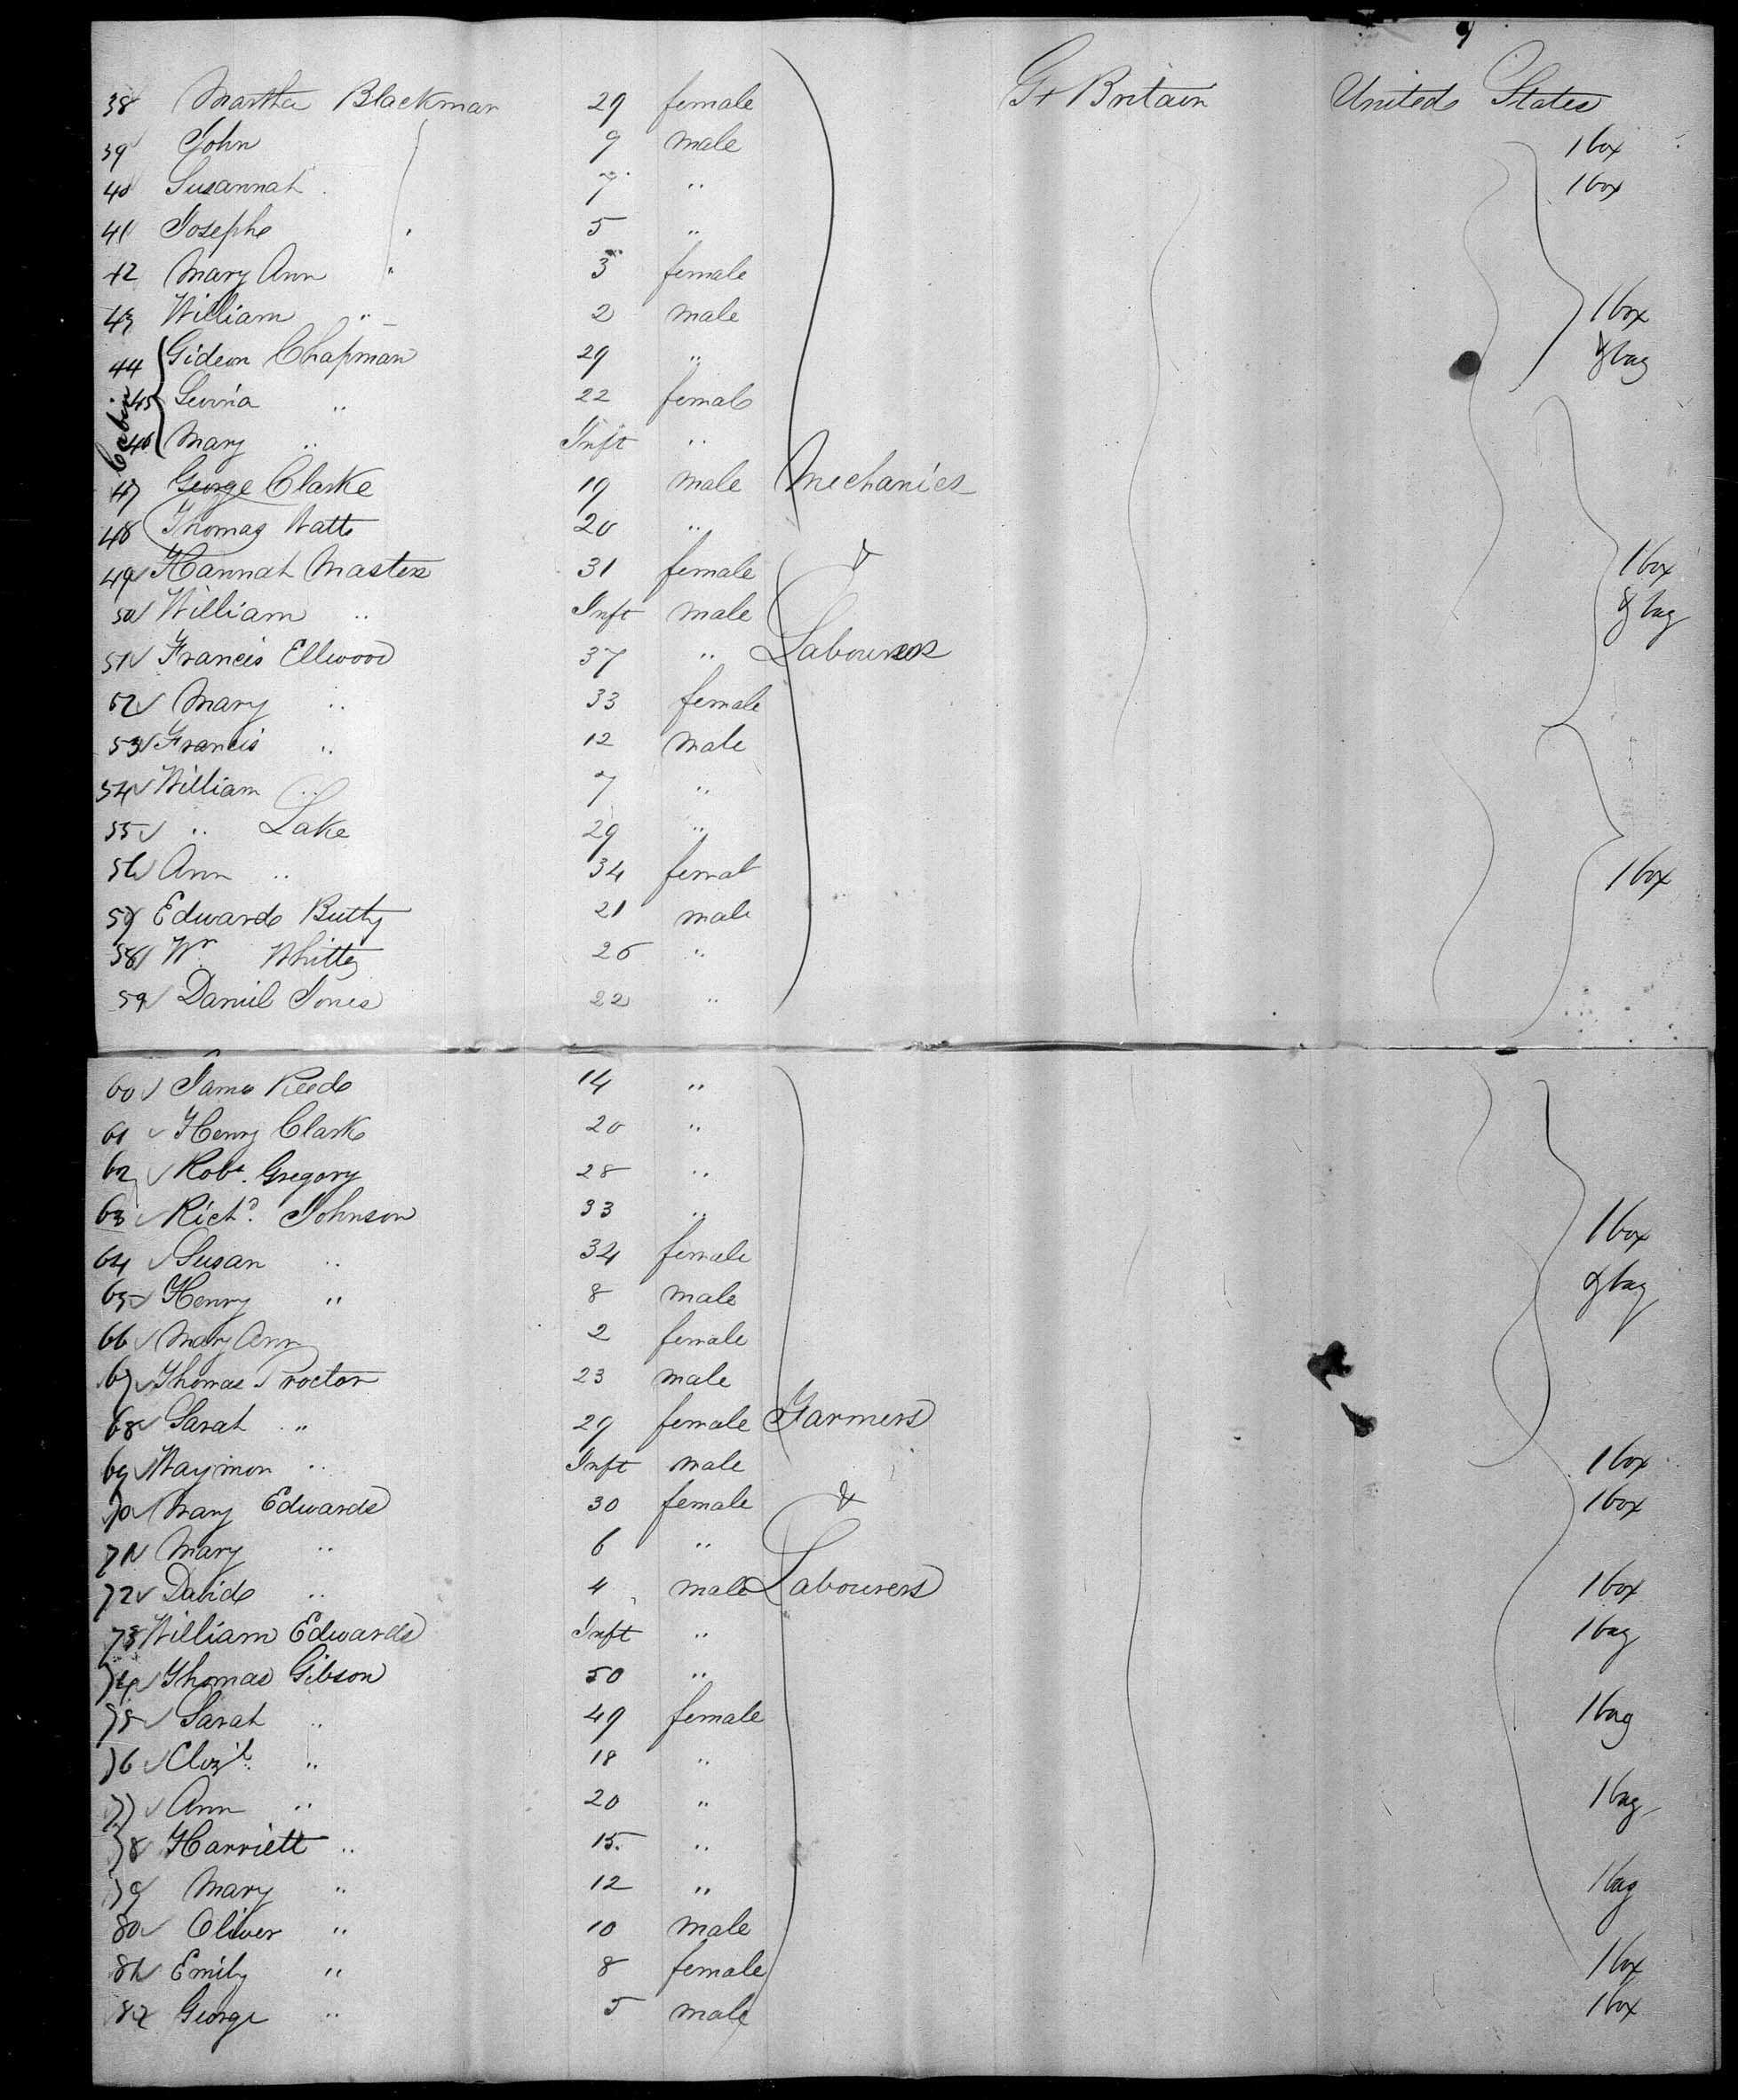 38 Martha Blackman 29 female Gt Britain United States
39 John 9 male 1 box
40 Susannah 7 " 1 box
41 Joseph " 5 "
42 Mary Ann " 3 female
43 William " 2 male 1 box
44 Gideon Chapman 29 " & bag
Cabin
45 " 22 female
46 Mary " Inft "
47 George Clarke 19 male Mechanics
48 Thomas Watts 20 "
49 Hannah Masters 31 female & 1 box
50 William " Inft male & bag
51 Francis Ellwood 37 " Labourers
52 Mary " 33 female
53 Francis " 12 male
54 William " 7 "
55 " Lake 29 "
56 Ann " 34 female 1 box
57 Edward 21 male
58 Wm 26 "
59 Daniel Jones 22 "
60 James Reed 14 "
61 Henry Clark 20 "
62 Robt. Gregory 28 "
63 Richd. Johnson 33 " 1 box
64 Susan " 34 female
65 Henry " 8 male & bag
66 Mary Ann 2 female
67 Thomas Proctor 23 male
68 Sarah " 29 female Farmers
69 " Inft male 1 box
70 Mary Edwards 30 female & 1 box
71 Mary " 6 "
72 David " 4 male Labourers 1 box
73 William Edwards Inft " 1 bag
74 Thomas Gibson 50 "
75 Sarah " 49 female 1 bag
76 " 18 "
77 Ann " 20 " 1 bag
78 Harriett " 15. "
79 Mary " 12 " 1 bag
80 Oliver " 10 male
81 Emily " 8 female 1 box
82 George " 5 male 1 box